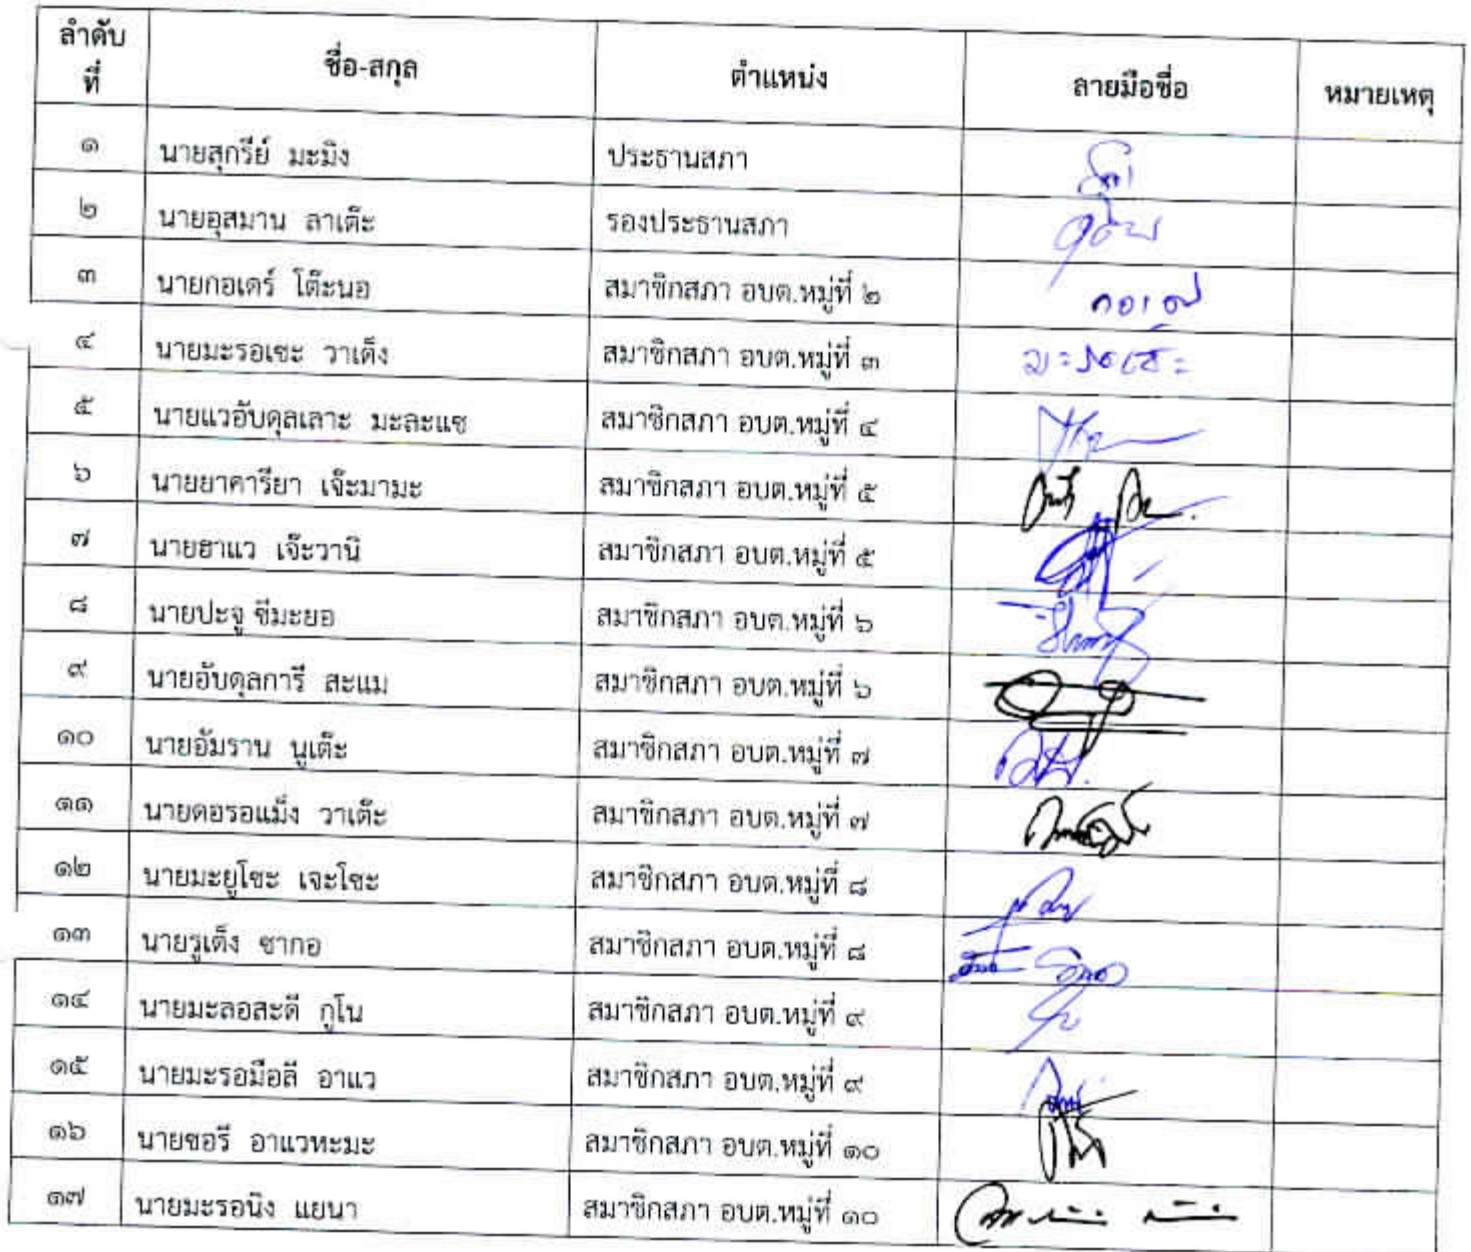 ลำดับ
ที่
ชื่อ-สกุล
ตำแหน่ง
ลายมือชื่อ
หมายเหตุ
๑ นายสุกรีย์ มะมิง ประธานสภา
๒ นายอุสมาน ลาเต๊ะ รองประธานสภา
๓ นายกอเดร์ โต๊ะนอ สมาชิกสภา อบต.หมู่ที่ ๒
๔ นายมะรอเซะ วาเด็ง สมาชิกสภา อบต.หมู่ที่ ๓ มะรอเซะ
๕ นายแวอับดุลเลาะ มะละแซ สมาชิกสภา อบต.หมู่ที่ ๔
๖ นายยาคารียา เจ๊ะมามะ สมาชิกสภา อบต.หมู่ที่ ๕
๗ นายฮาแว เจ๊ะวานิ สมาชิกสภา อบต.หมู่ที่ ๕
๘ นายปะจู ซีมะยอ สมาชิกสภา อบต.หมู่ที่ ๖
๙ นายอับดุลการี สะแม สมาชิกสภา อบต.หมู่ที่ ๖
๑๐ นายอัมราน นูเต๊ะ สมาชิกสภา อบต.หมู่ที่ ๗
๑๑ นายดอรอแม็ง วาเต๊ะ สมาชิกสภา อบต.หมู่ที่ ๗
๑๒ นายมะยูโซะ เจะโซะ สมาชิกสภา อบต.หมู่ที่ ๘
๑๓ นายรูเด็ง ซากอ สมาชิกสภา อบต.หมู่ที่ ๘
๑๔ นายมะลอสะดี กูโน สมาชิกสภา อบต.หมู่ที่ ๙
๑๕ นายมะรอมือลี อาแว สมาชิกสภา อบต.หมู่ที่ ๙
๑๖ นายซอรี อาแวหะมะ สมาชิกสภา อบต.หมู่ที่ ๑๐
๑๗ นายมะรอนิง แยนา สมาชิกสภา อบต.หมู่ที่ ๑๐